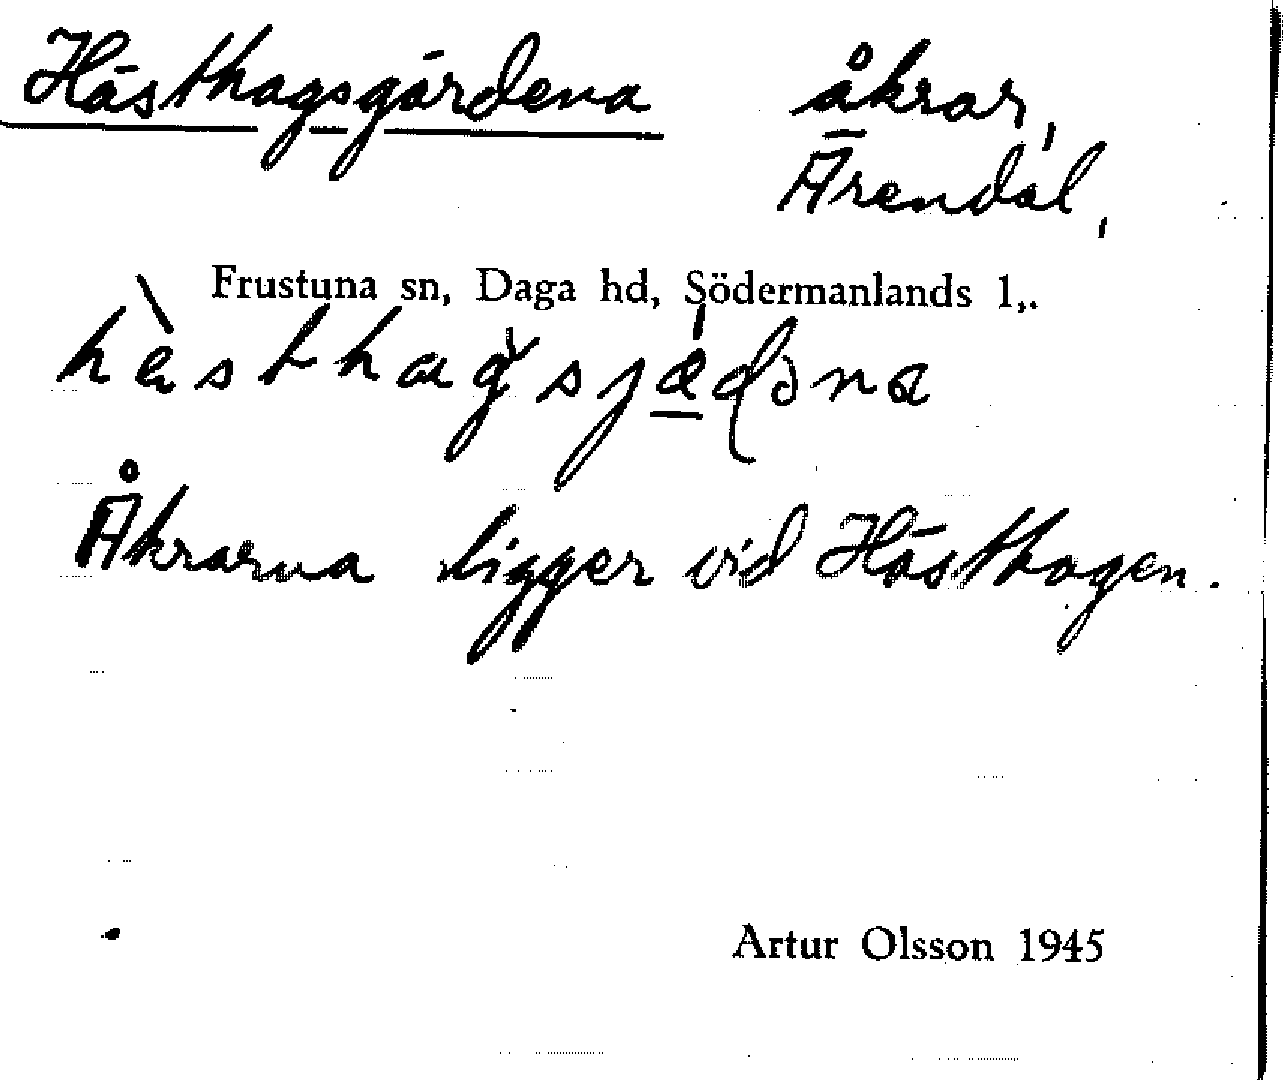 Hästhagsgärdena åkrar,
Ärendal,
Frustuna sn, Daga hd, Södermanlands l,.
hàsthagsjædəna
Åkrarna ligger vid Hästhagen.
Artur Olsson 1945